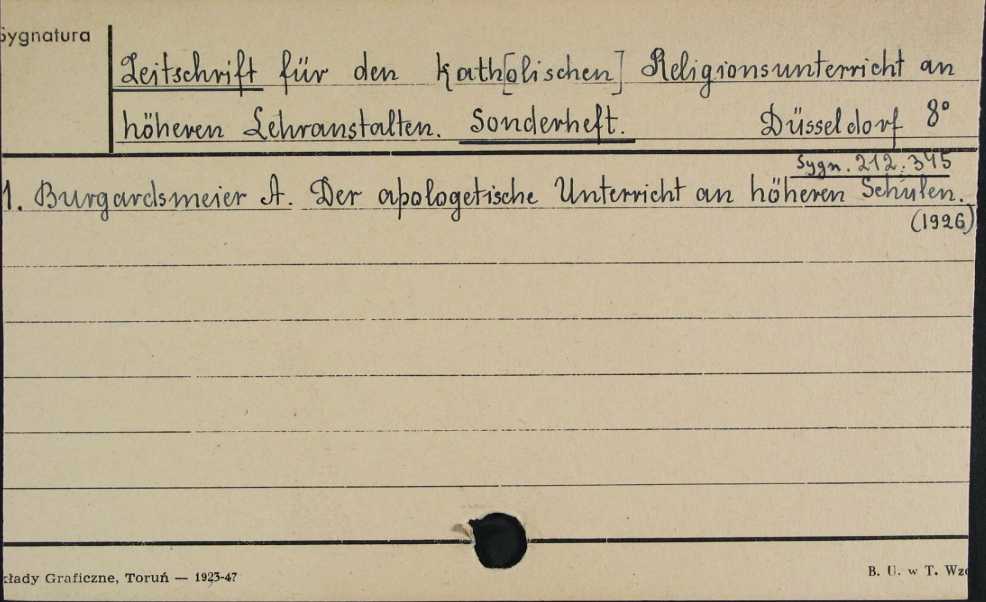 Sygnatura
Zeitschrift für den kath[olischen] Religionsunterricht an
höheren Lehranstalten. Sonderheft. Düsseldorf 8°
Sygn. 212.345
1. Burgardsmeier A. Der apologetische Unterricht an höheren Schulen.
(1926)
kłady Graficzne, Toruń — 1923-47
B. U. w T. Wzo